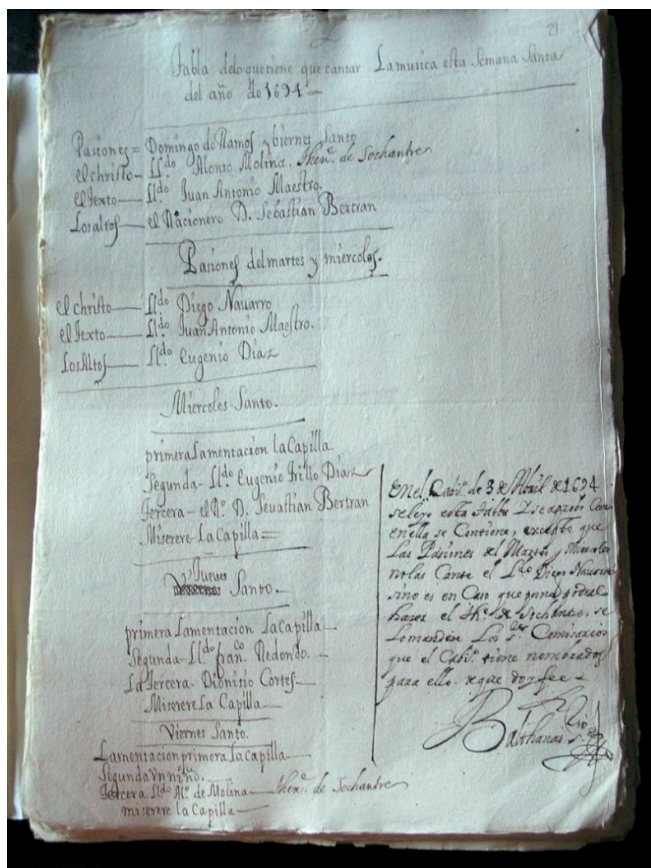 21
Tabla delo que tiene que cantar La musica esta Semana Santa
del año de 1694
Pasiones = Domingo de Ramos y biernes Santo
el christo — Ll.do Alonso Molina. then.e de Sochantre
el Texto — Ll.do Juan Antonio Maestro.
Los altos — el Racionero D. Sebastian Bertran
Pasiones del martes y miercoles.
el christo — Ll.do Diego Nauarro
el Texto — Ll.do Juan Antonio Maestro.
Los Altos — Ll.do Eugenio Diaz
Miercoles Santo.
primera Lamentacion la Capilla.
Segunda - Ll.do Eugenio Trillo Diaz
Tercera - el R.o D. Seuastian Bertran
Miserere La Capilla =
Jueues
Santo.
primera Lamentacion La Capilla
Segunda - Ll.do fran.co Redondo.
La Tercera - Dionisio Cortes
Miserere La Capilla
Viernes Santo.
Lamentacion primera La Capilla
Segunda Vn niño.
Tercera Ll.do Al.o de Molina — then.e de Sochantre
miserere la Capilla
En el Cabi.o de 3 de Abril de 1694
se leyo esta tabla y se aprobo como
en ella se Contiene, excepto que
Las Pasiones del Martes y Miercoles
no las Cante el L.do Diego Nauarro
sino es en Caso que no pueda
hazer el th.e de Sochantre. se
lo manden Los s.res Comisarios
que el Cabi.o tiene nombrados
para ello. de que doy fee
Balthanas
s.rio